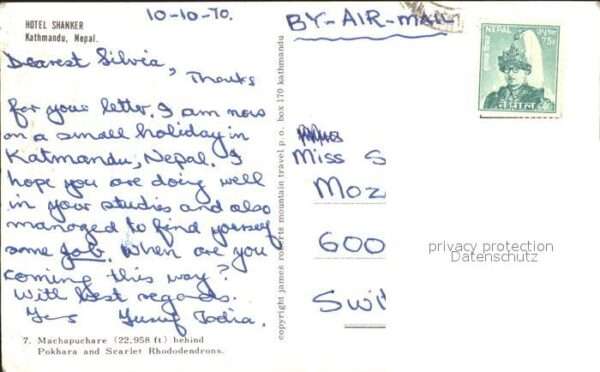 HOTEL SHANKER
Kathmandu, Nepal.
10-10-70.
Dearest Silvia,
Thanks
for your letter. I am now
on a small holiday in
Katmandu, Nepal. I
hope you are doing well
in your studies and also
managed to find yourself
some job. When are you
coming this way?
With best regards.
Yusuf
7. Machapuchare (22,958 ft) behind
Pokhara and Scarlet Rhododendrons.
copyright james roberts mountain travel p.o. box 170 kathmandu
BY-AIR-MAIL
NEPAL
नेपाल
Miss S
Moz
600
Swi
privacy protection
Datenschutz